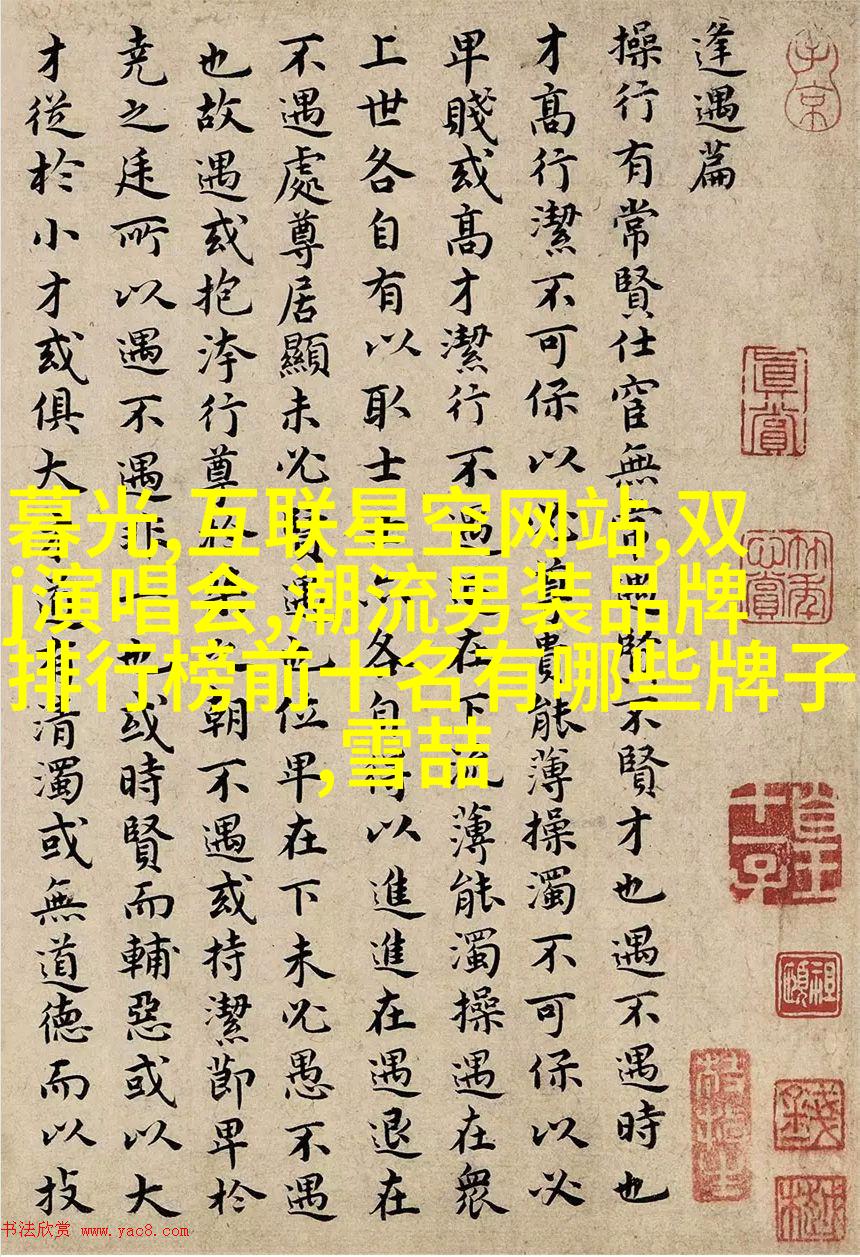 逢遇篇
操行有常賢仕宦無常遇賢不賢才也遇不遇時也
才高行潔不可保以必尊貴能薄操濁不可保以必
卑賤或高才潔行不遇退在下流薄能濁操遇在衆
上世各自有以取士士亦各自得以進進在遇退在
不遇處尊居顯未必賢遇也位卑在下未必愚不遇
也故遇或抱洿行尊於桀之朝不遇或持潔節卑於
堯之廷所以遇不遇非一也或時賢而輔惡或以大
才從於小才或俱大才道有清濁或無道德而以技
真賞
暮光,互联星空网站,双
j演唱会,潮流男装品牌
排行榜前十名有哪些牌子
,雪喆
书法欣赏 www.yac8.com